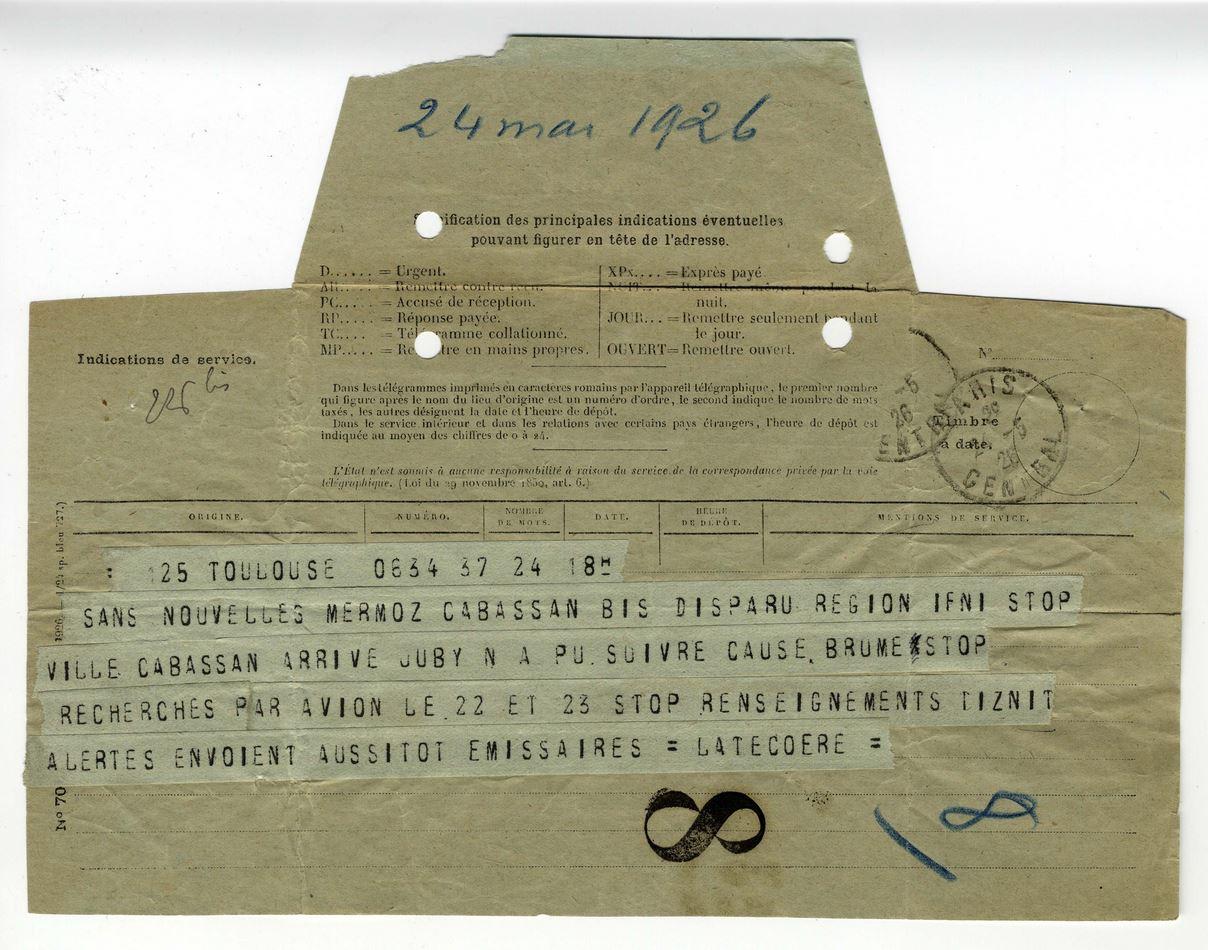 24 mai 1926
Signification des principales indications éventuelles
pouvant figurer en tête de l'adresse.
D...... = Urgent.
AR..... = Remettre contre reçu.
PC..... = Accusé de réception.
RP..... = Réponse payée.
TC..... = Télégramme collationné.
MP..... = Remettre en mains propres.
XPx.... = Exprès payé
NUIT... = Remettre même pendant la
nuit.
JOUR... = Remettre seulement pendant
le jour.
OUVERT= Remettre ouvert.
Indications de service.
225 bis
N°
Timbre
à date.
PARIS
CENTRAL
-5
26
Dans les télégrammes imprimés en caractères romains par l'appareil télégraphique, le premier nombre
qui figure après le nom du lieu d'origine est un numéro d'ordre, le second indique le nombre de mots
taxés, les autres désignent la date et l'heure de dépôt.
Dans le service intérieur et dans les relations avec certains pays étrangers, l'heure de dépôt est
indiquée au moyen des chiffres de 0 à 24.
L'État n'est soumis à aucune responsabilité à raison du service de la correspondance privée par la voie
télégraphique. (Loi du 29 novembre 1850, art. 6.)
ORIGINE. NUMÉRO. NOMBRE DE MOTS. DATE. HEURE DE DÉPÔT. MENTIONS DE SERVICE.
: 125 TOULOUSE 0634 37 24 18H
SANS NOUVELLES MERMOZ CABASSAN BIS DISPARU REGION IFNI STOP
VILLE CABASSAN ARRIVE JUBY N A PU SUIVRE CAUSE BRUME STOP
RECHERCHES PAR AVION LE 22 ET 23 STOP RENSEIGNEMENTS TIZNIT
ALERTES ENVOIENT AUSSITOT EMISSAIRES = LATECOERE =
N° 70
8
18